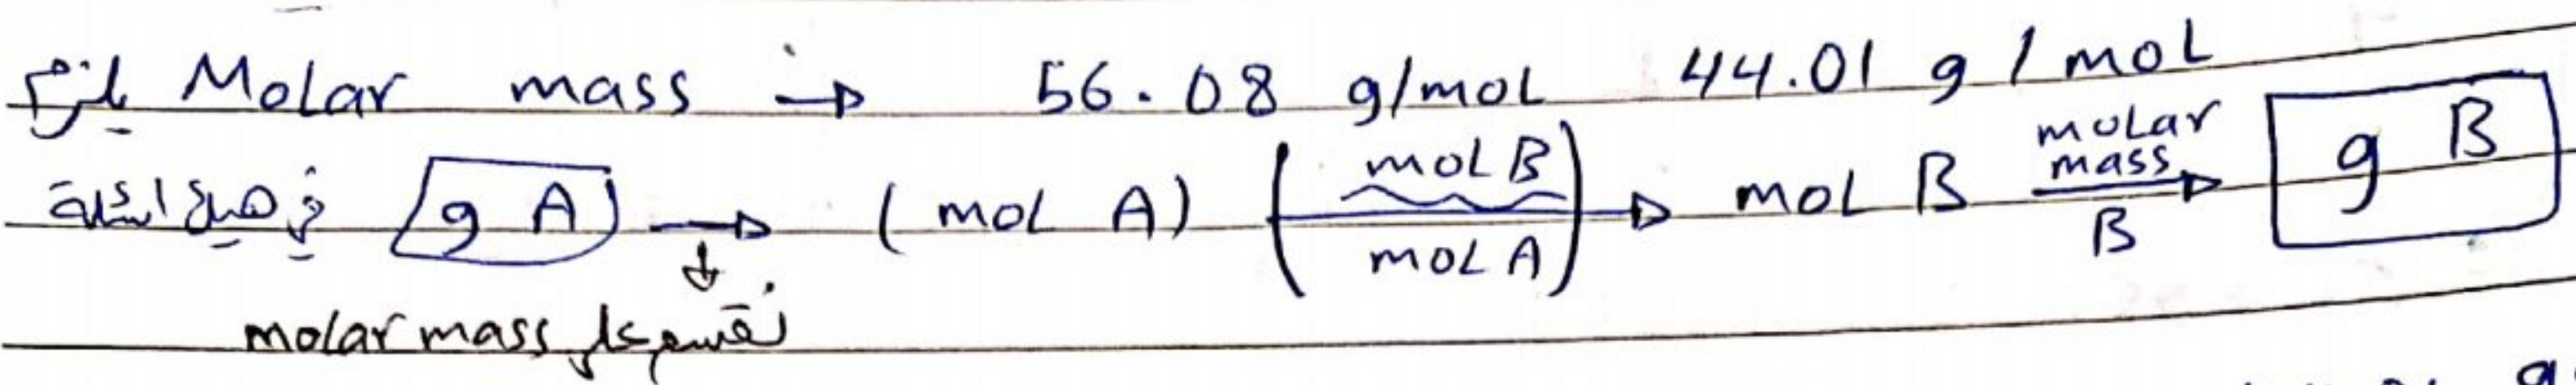 يلزم Molar mass → 56.08 g/mol 44.01 g/mol
في هيك اسئلة g A → (mol A) (mol B / mol A) → mol B molar mass B → g B
↓
نقسم على molar mass